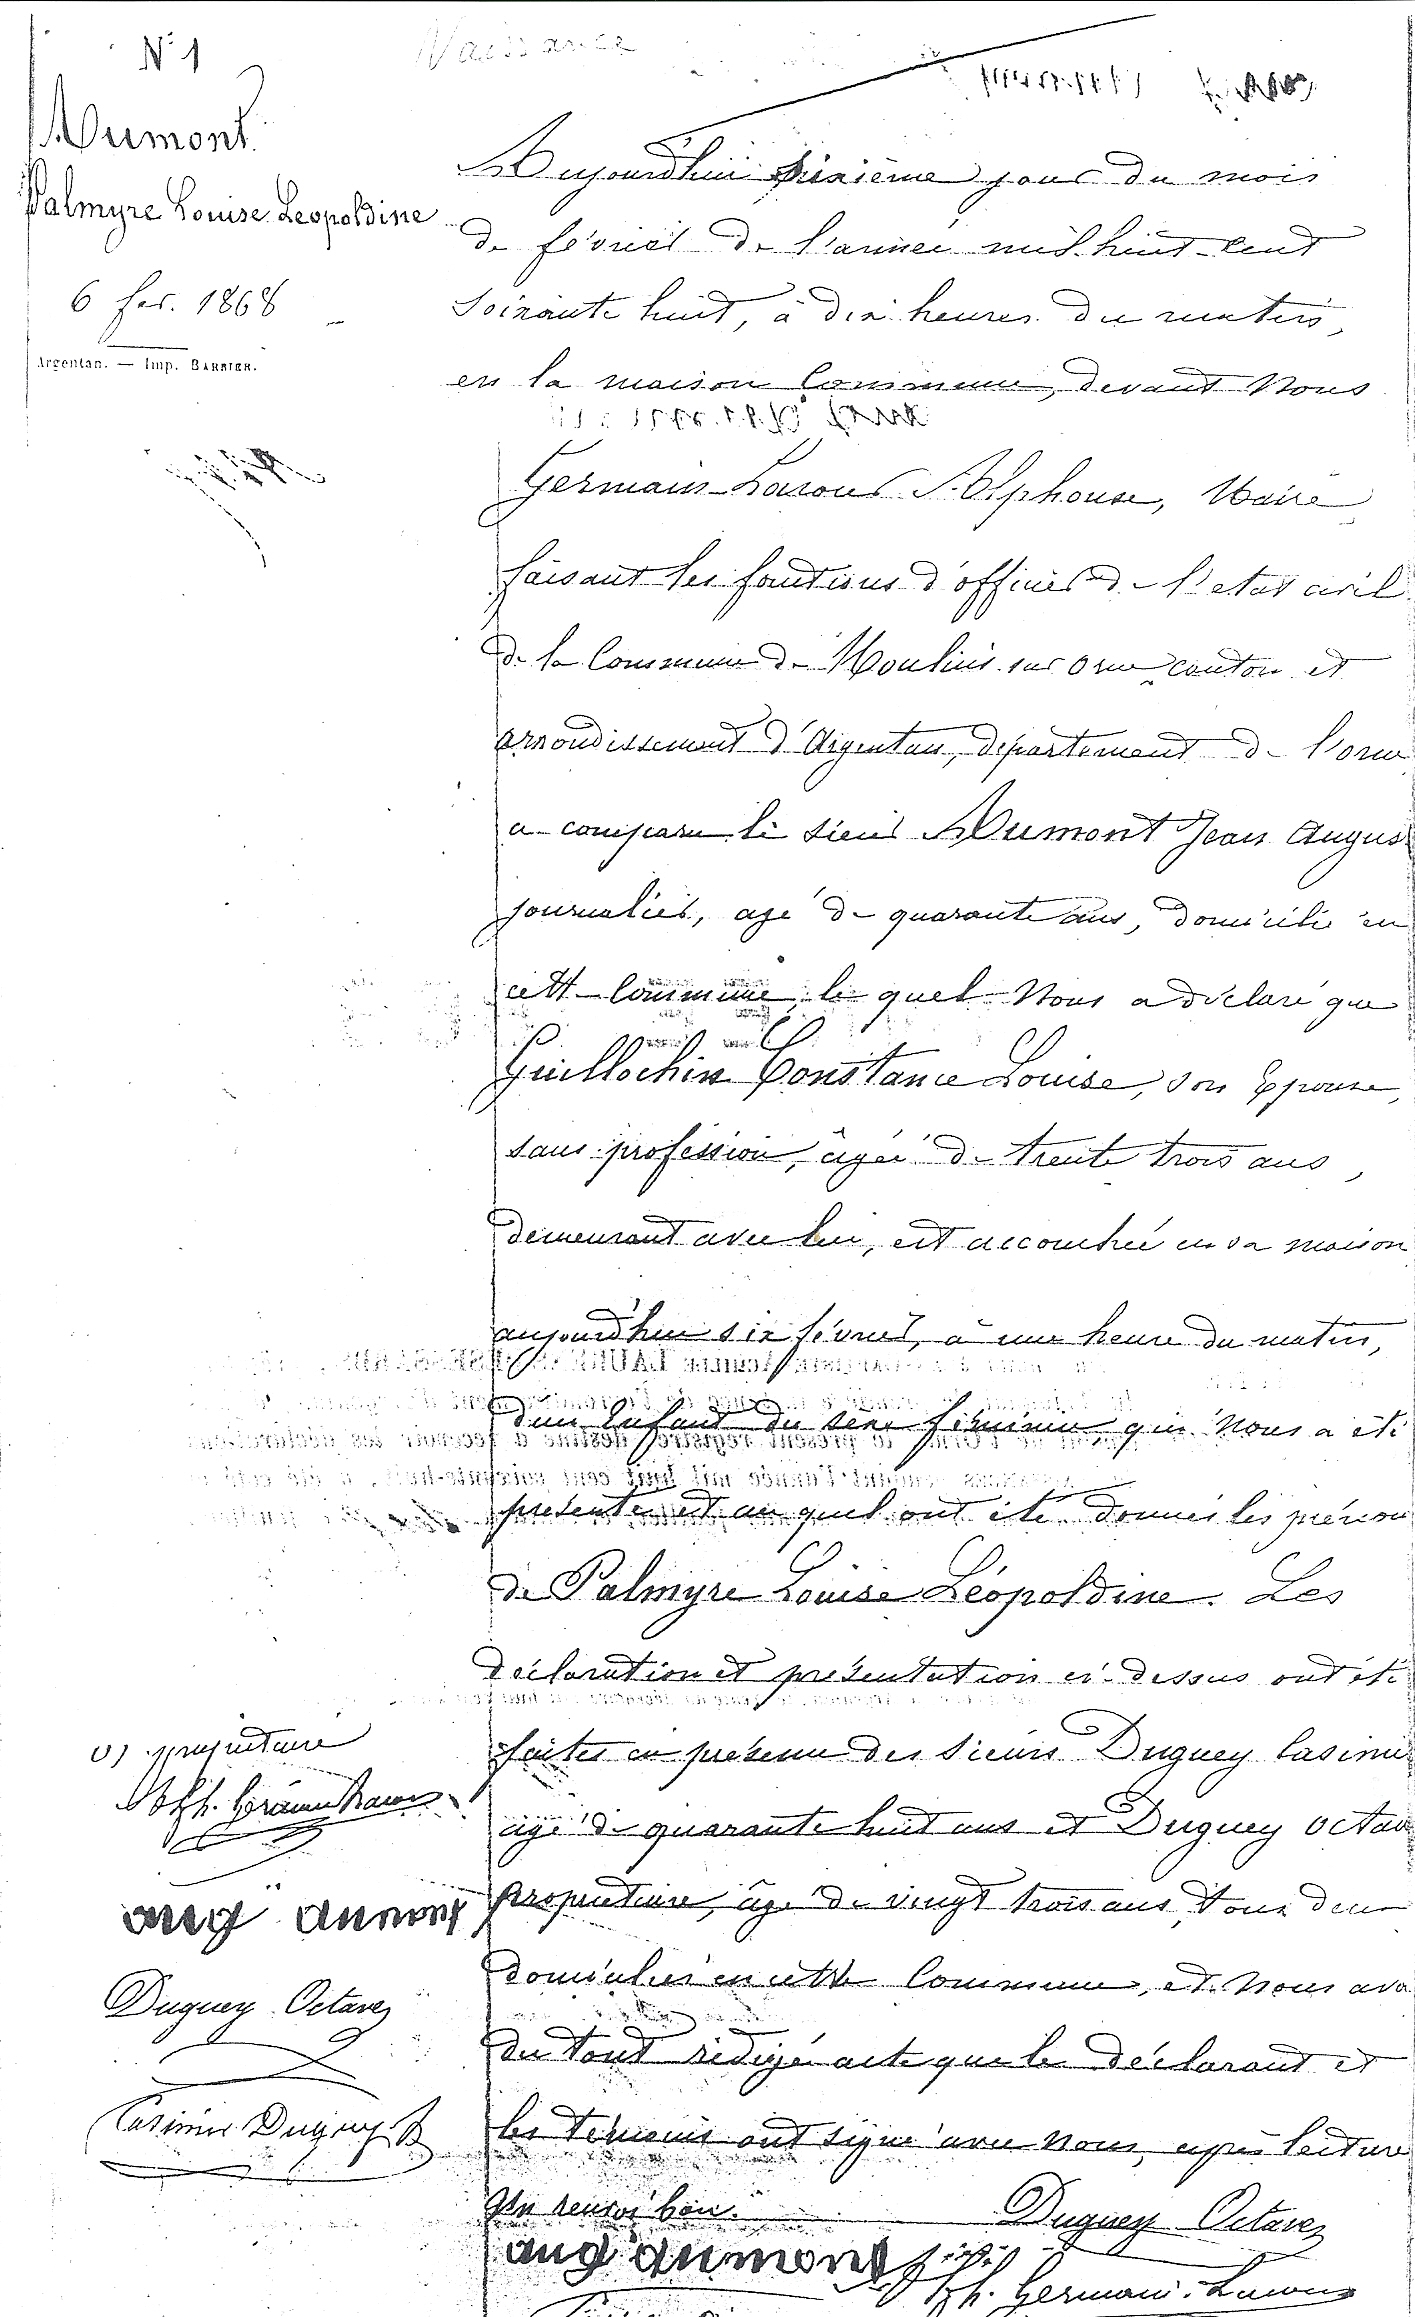 N° 1
Naissance
Aumont
Palmyre Louise Leopoldine
6 fev. 1868
Argentan. — Imp. BARBIER.
Aujourd'hui sixième jour du mois
de février de l'année mil huit cent
soixante huit, à dix heures du matin,
en la maison Commune, devant Nous
Germain-Lacour Alphonse, Maire
faisant les fonctions d'officier de l'etat civil
de la Commune de Moulins sur Orne canton et
arrondissement d'Argentan, département de l'orne
a comparu le sieur Aumont Jean Augus
journalier, agé de quarante ans, domicilié en
cette Commune, le quel Nous a déclaré que
Guillochin Constance Louise, son Epouse,
sans profession, âgée de trente trois ans,
demeurant avec lui, est accouchée en sa maison
aujourd'hui six février, à une heure du matin,
d'un Enfant du sexe féminin, qui Nous a été
présenté et au quel ont été donnés les prénom
de Palmyre Louise Léopoldine. Les
déclaration et présentation ci-dessus ont été
faites en présence des sieurs Duguey Casimir
âgé de quarante huit ans et Duguey Octav
propriétaire, âgé de vingt trois ans, tous deux
domiciliés en cette Commune, et Nous avo
du tout rédigé acte que le déclarant et
les témoins ont signé avec Nous, après lecture
Un renvoi bon.
(1) propriétaire
Alph. Germain Lacour
aug aumont
Duguey Octave
Casimir Duguey
Duguey Octave
aug aumont
Alph. Germain-Lacour